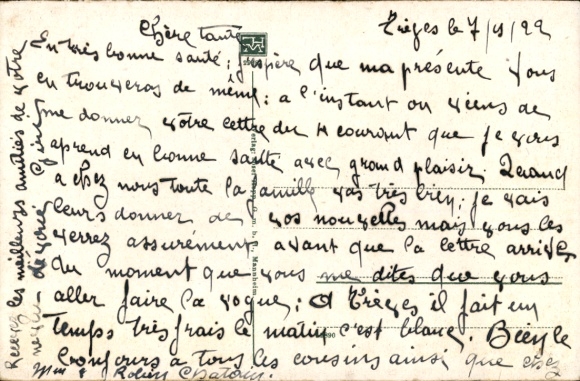 Chère tante Trèves le 7/11/22
En très bonne santé; j'espère que ma présente vous
en trouveras de même; a l'instant on viens de
me donner votre lettre du 4 courant que je vous
aprend en bonne santé avec grand plaisir. Quand
a chez nous toute la famille vas très bien; je vais
leurs donner de vos nouvelles mais vous les
verrez assurément avant que la lettre arrive
du moment que vous me dites que vous
aller faire la vogue; A Trèves il fait un
temps très frais le matin c'est blanc. Bien le
bonjours a tous les cousins ainsi que chez
Mme & Robin Chatain.
Recevez les meilleurs amitiés de votre
neveu dévoué
Mannheim